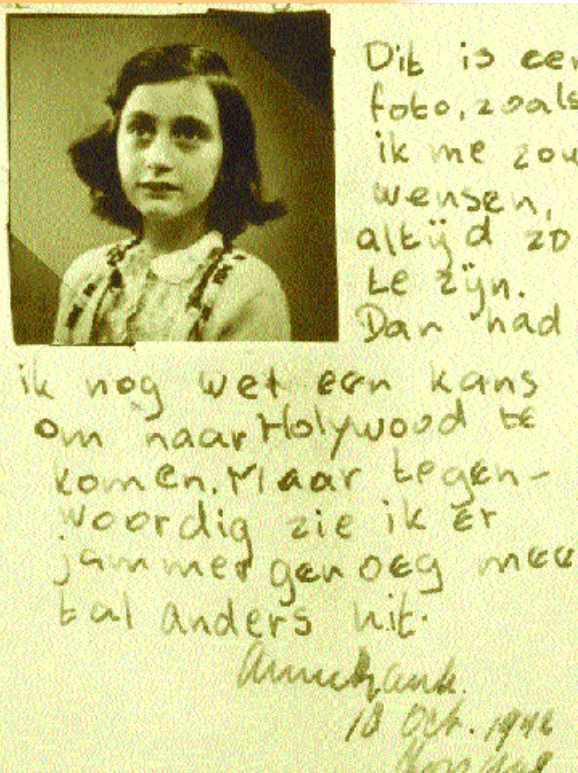 Dit is een
foto, zoals
ik me zou
wensen,
altijd zo
te zijn.
Dan had
ik nog wel een kans
om naar Holywood te
komen. Maar tegen-
woordig zie ik er
jammer genoeg mees
tal anders uit.
Annefrank.
18 Oct. 1942